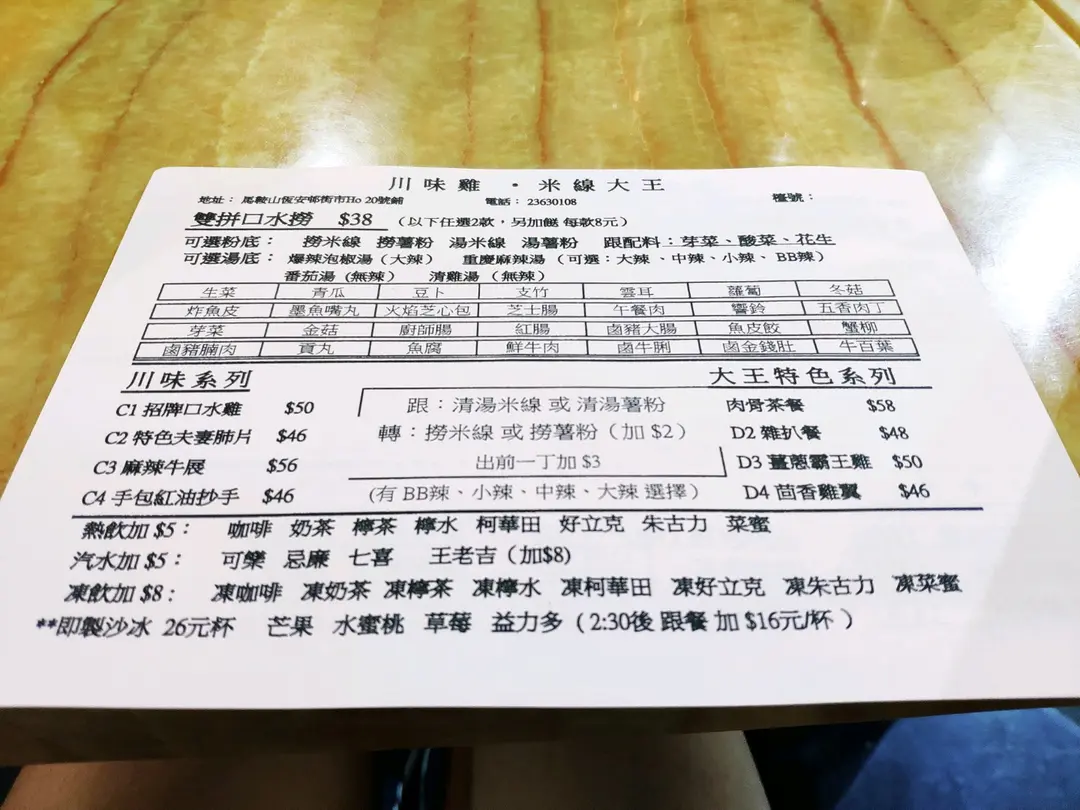 川味雞・米線大王
地址： 馬鞍山恆安邨街市Ho 20號舖 電話： 23630108 檯號：
雙拼口水撈 $38 （以下任選2款，另加餸 每款8元）
可選粉底： 撈米線 撈薯粉 湯米線 湯薯粉 跟配料：芽菜、酸菜、花生
可選湯底： 爆辣泡椒湯（大辣） 重慶麻辣湯（可選：大辣、中辣、小辣、BB辣）
番茄湯（無辣） 清雞湯（無辣）
生菜 青瓜 豆卜 支竹 雲耳 蘿蔔 冬菇
炸魚皮 墨魚嘴丸 火焰芝心包 芝士腸 午餐肉 響鈴 五香肉丁
芽菜 金菇 廚師腸 紅腸 鹵豬大腸 魚皮餃 蟹柳
鹵豬腩肉 貢丸 魚腐 鮮牛肉 鹵牛脷 鹵金錢肚 牛百葉
川味系列 大王特色系列
C1 招牌口水雞 $50 跟：清湯米線 或 清湯薯粉 肉骨茶餐 $58
C2 特色夫妻肺片 $46 轉：撈米線 或 撈薯粉（加 $2） D2 雜扒餐 $48
C3 麻辣牛展 $56 出前一丁加 $3 D3 薑蔥霸王雞 $50
C4 手包紅油抄手 $46 (有 BB辣、小辣、中辣、大辣 選擇) D4 茴香雞翼 $46
熱飲加 $5： 咖啡 奶茶 檸茶 檸水 柯華田 好立克 朱古力 菜蜜
汽水加 $5： 可樂 忌廉 七喜 王老吉（加$8)
凍飲加 $8： 凍咖啡 凍奶茶 凍檸茶 凍檸水 凍柯華田 凍好立克 凍朱古力 凍菜蜜
**即製沙冰 26元杯 芒果 水蜜桃 草莓 益力多（2:30後 跟餐 加 $16元/杯 ）